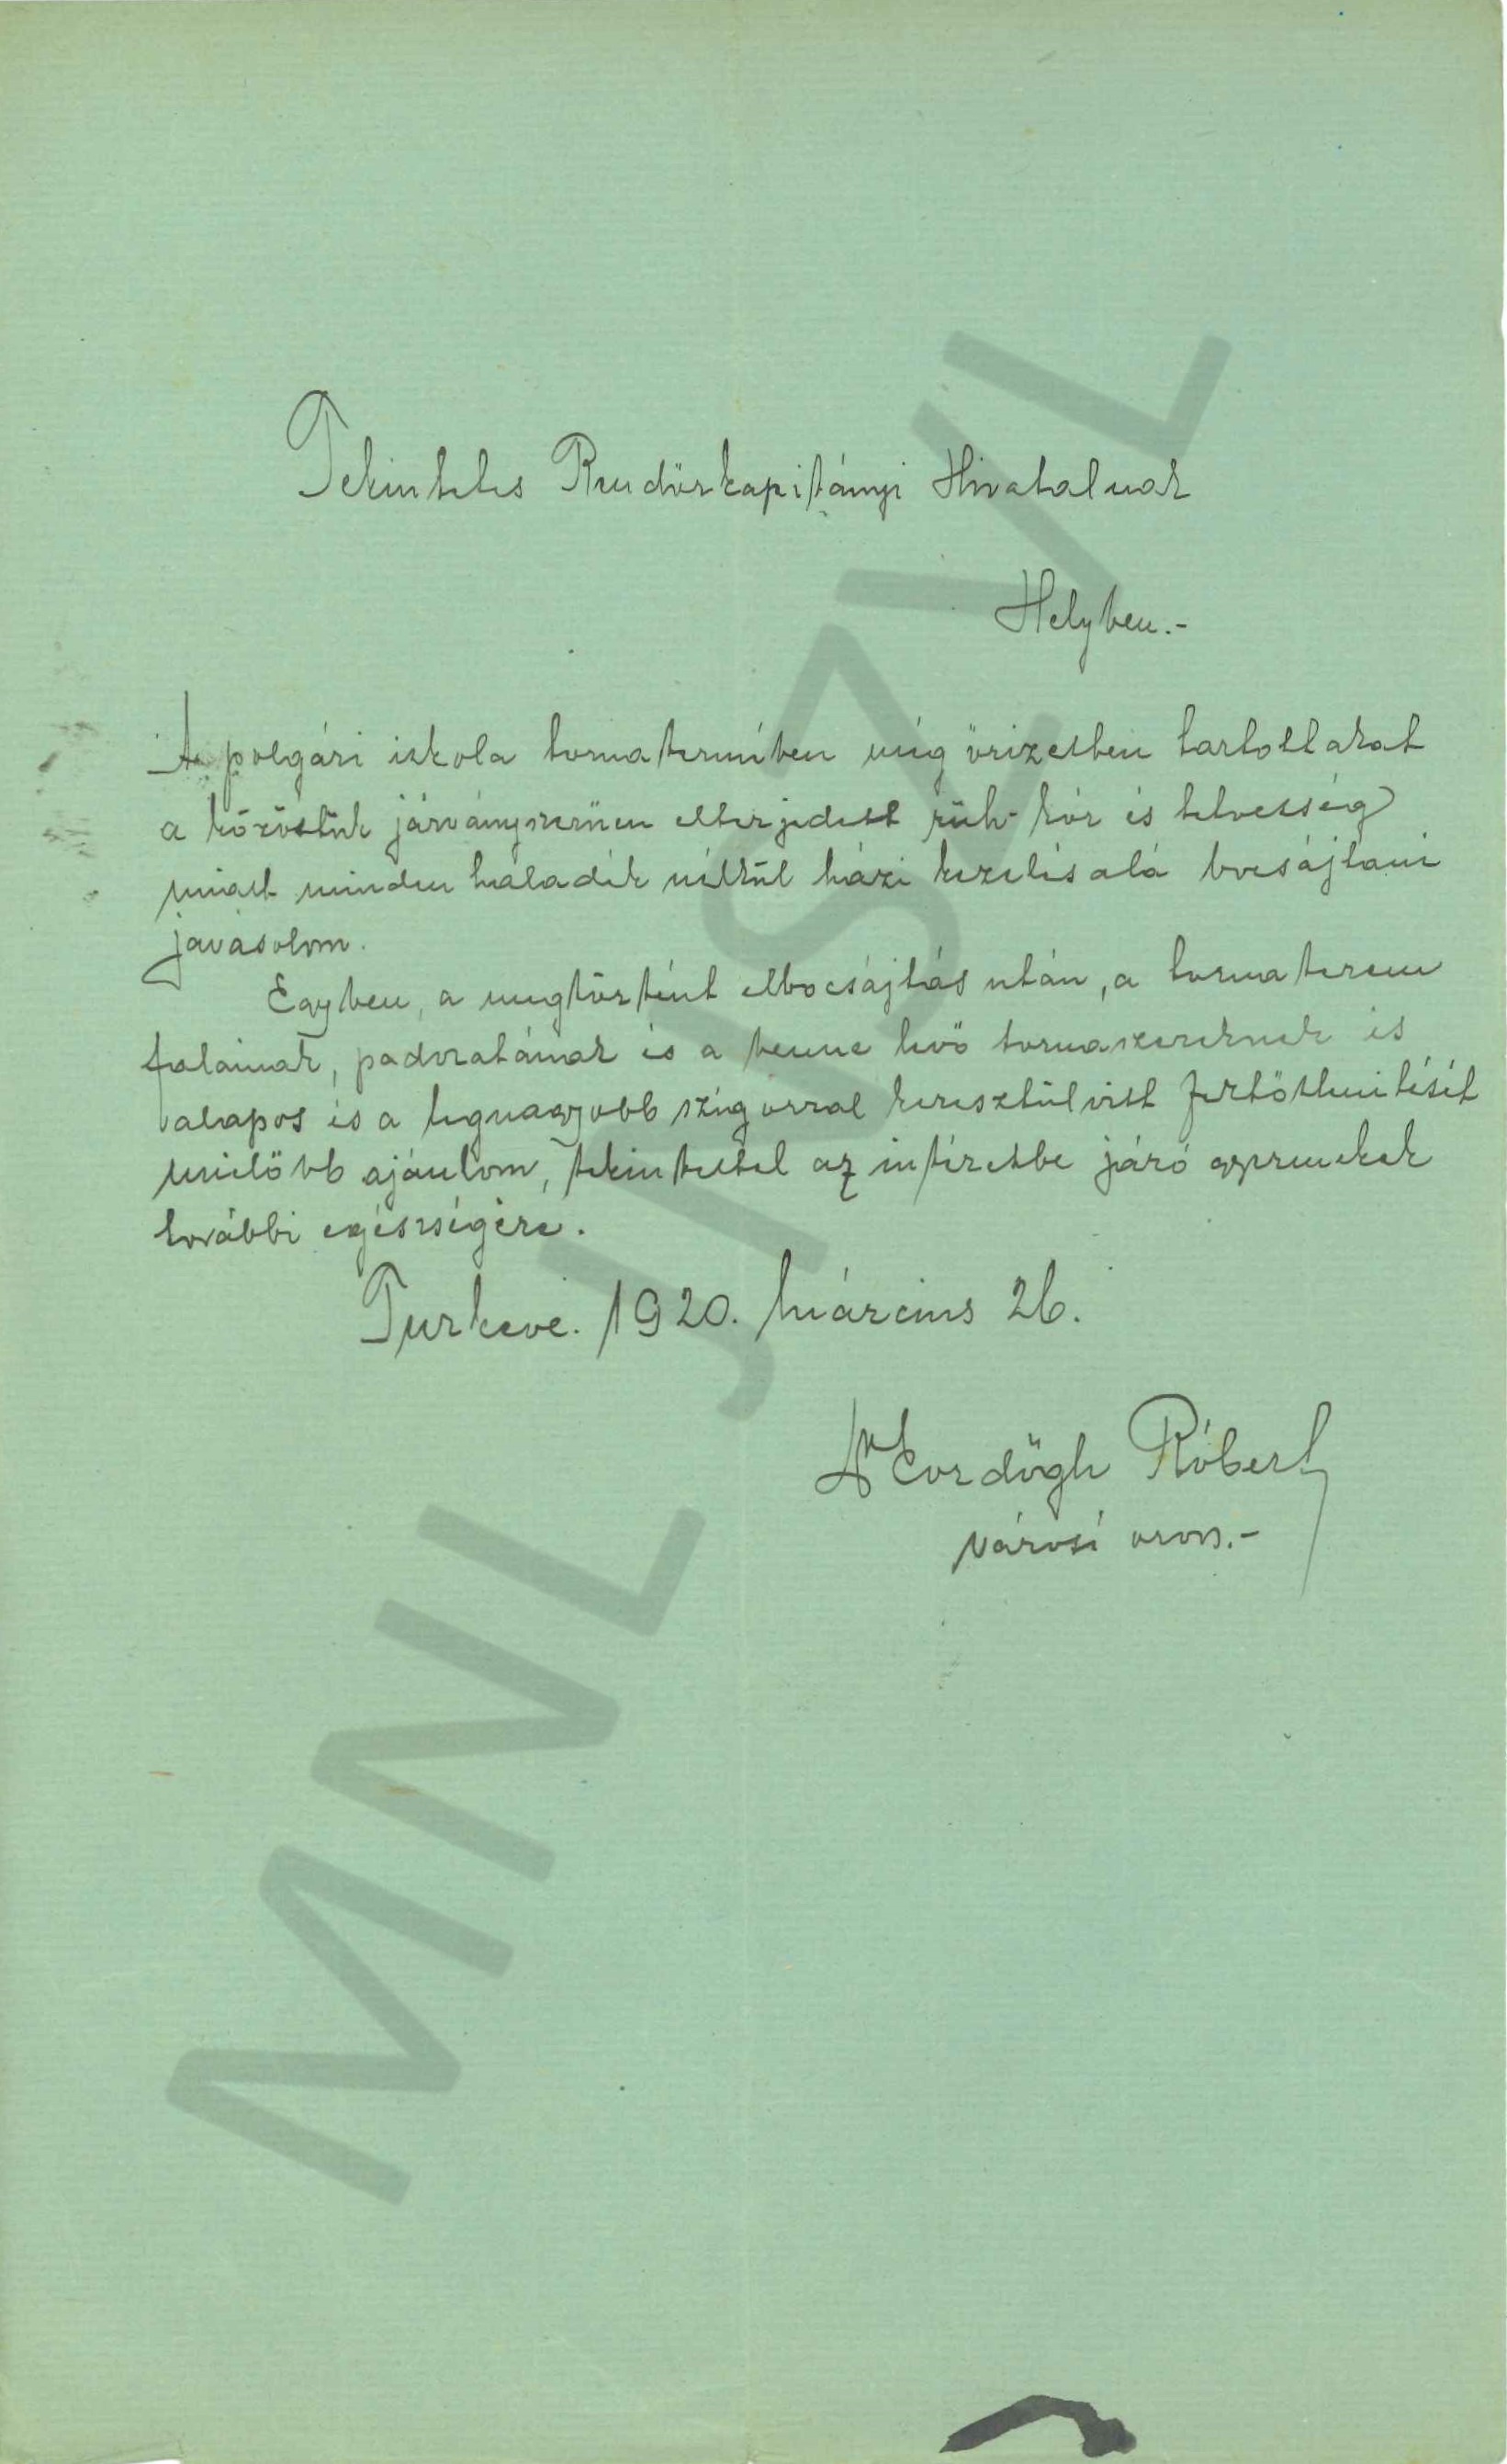 Tekintetes Rendőrkapitányi Hivatalnak
Helyben.-
A polgári iskola tornatermében még őrizetben tartottakat
a közöttük járványszerűen elterjedett rüh-kór és tetvesség
miatt minden haladék nélkül házi kezelés alá bocsájtani
javasolom.
Egyben, a megtörtént elbocsájtás után, a torna terem
falainak, padozatának és a benne levő tornaszereknek is
alapos és a legnagyobb szigorral keresztülvitt fertőtlenítését
mielőbb ajánlom, tekintettel az intézetbe járó gyermekek
további egészségére.
Turkeve. 1920. március 26.
Dr Eördögh Róbert
városi orvos.-
MNL JNSZVL